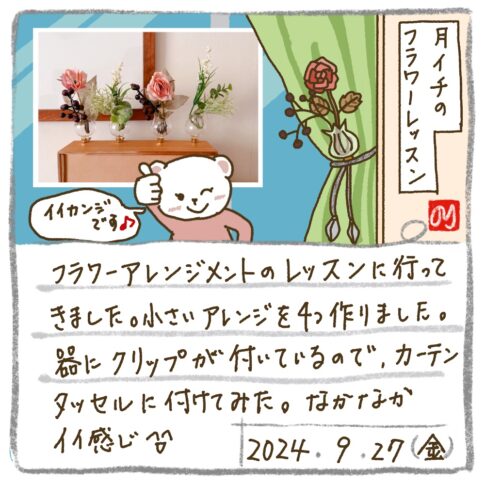 月イチの
フラワーレッスン
イイカンジ
です♪
フラワーアレンジメントのレッスンに行って
きました。小さいアレンジを4つ作りました。
器にクリップが付いているので、カーテン
タッセルに付けてみた。なかなか
イイ感じ
2024.9.27(金)